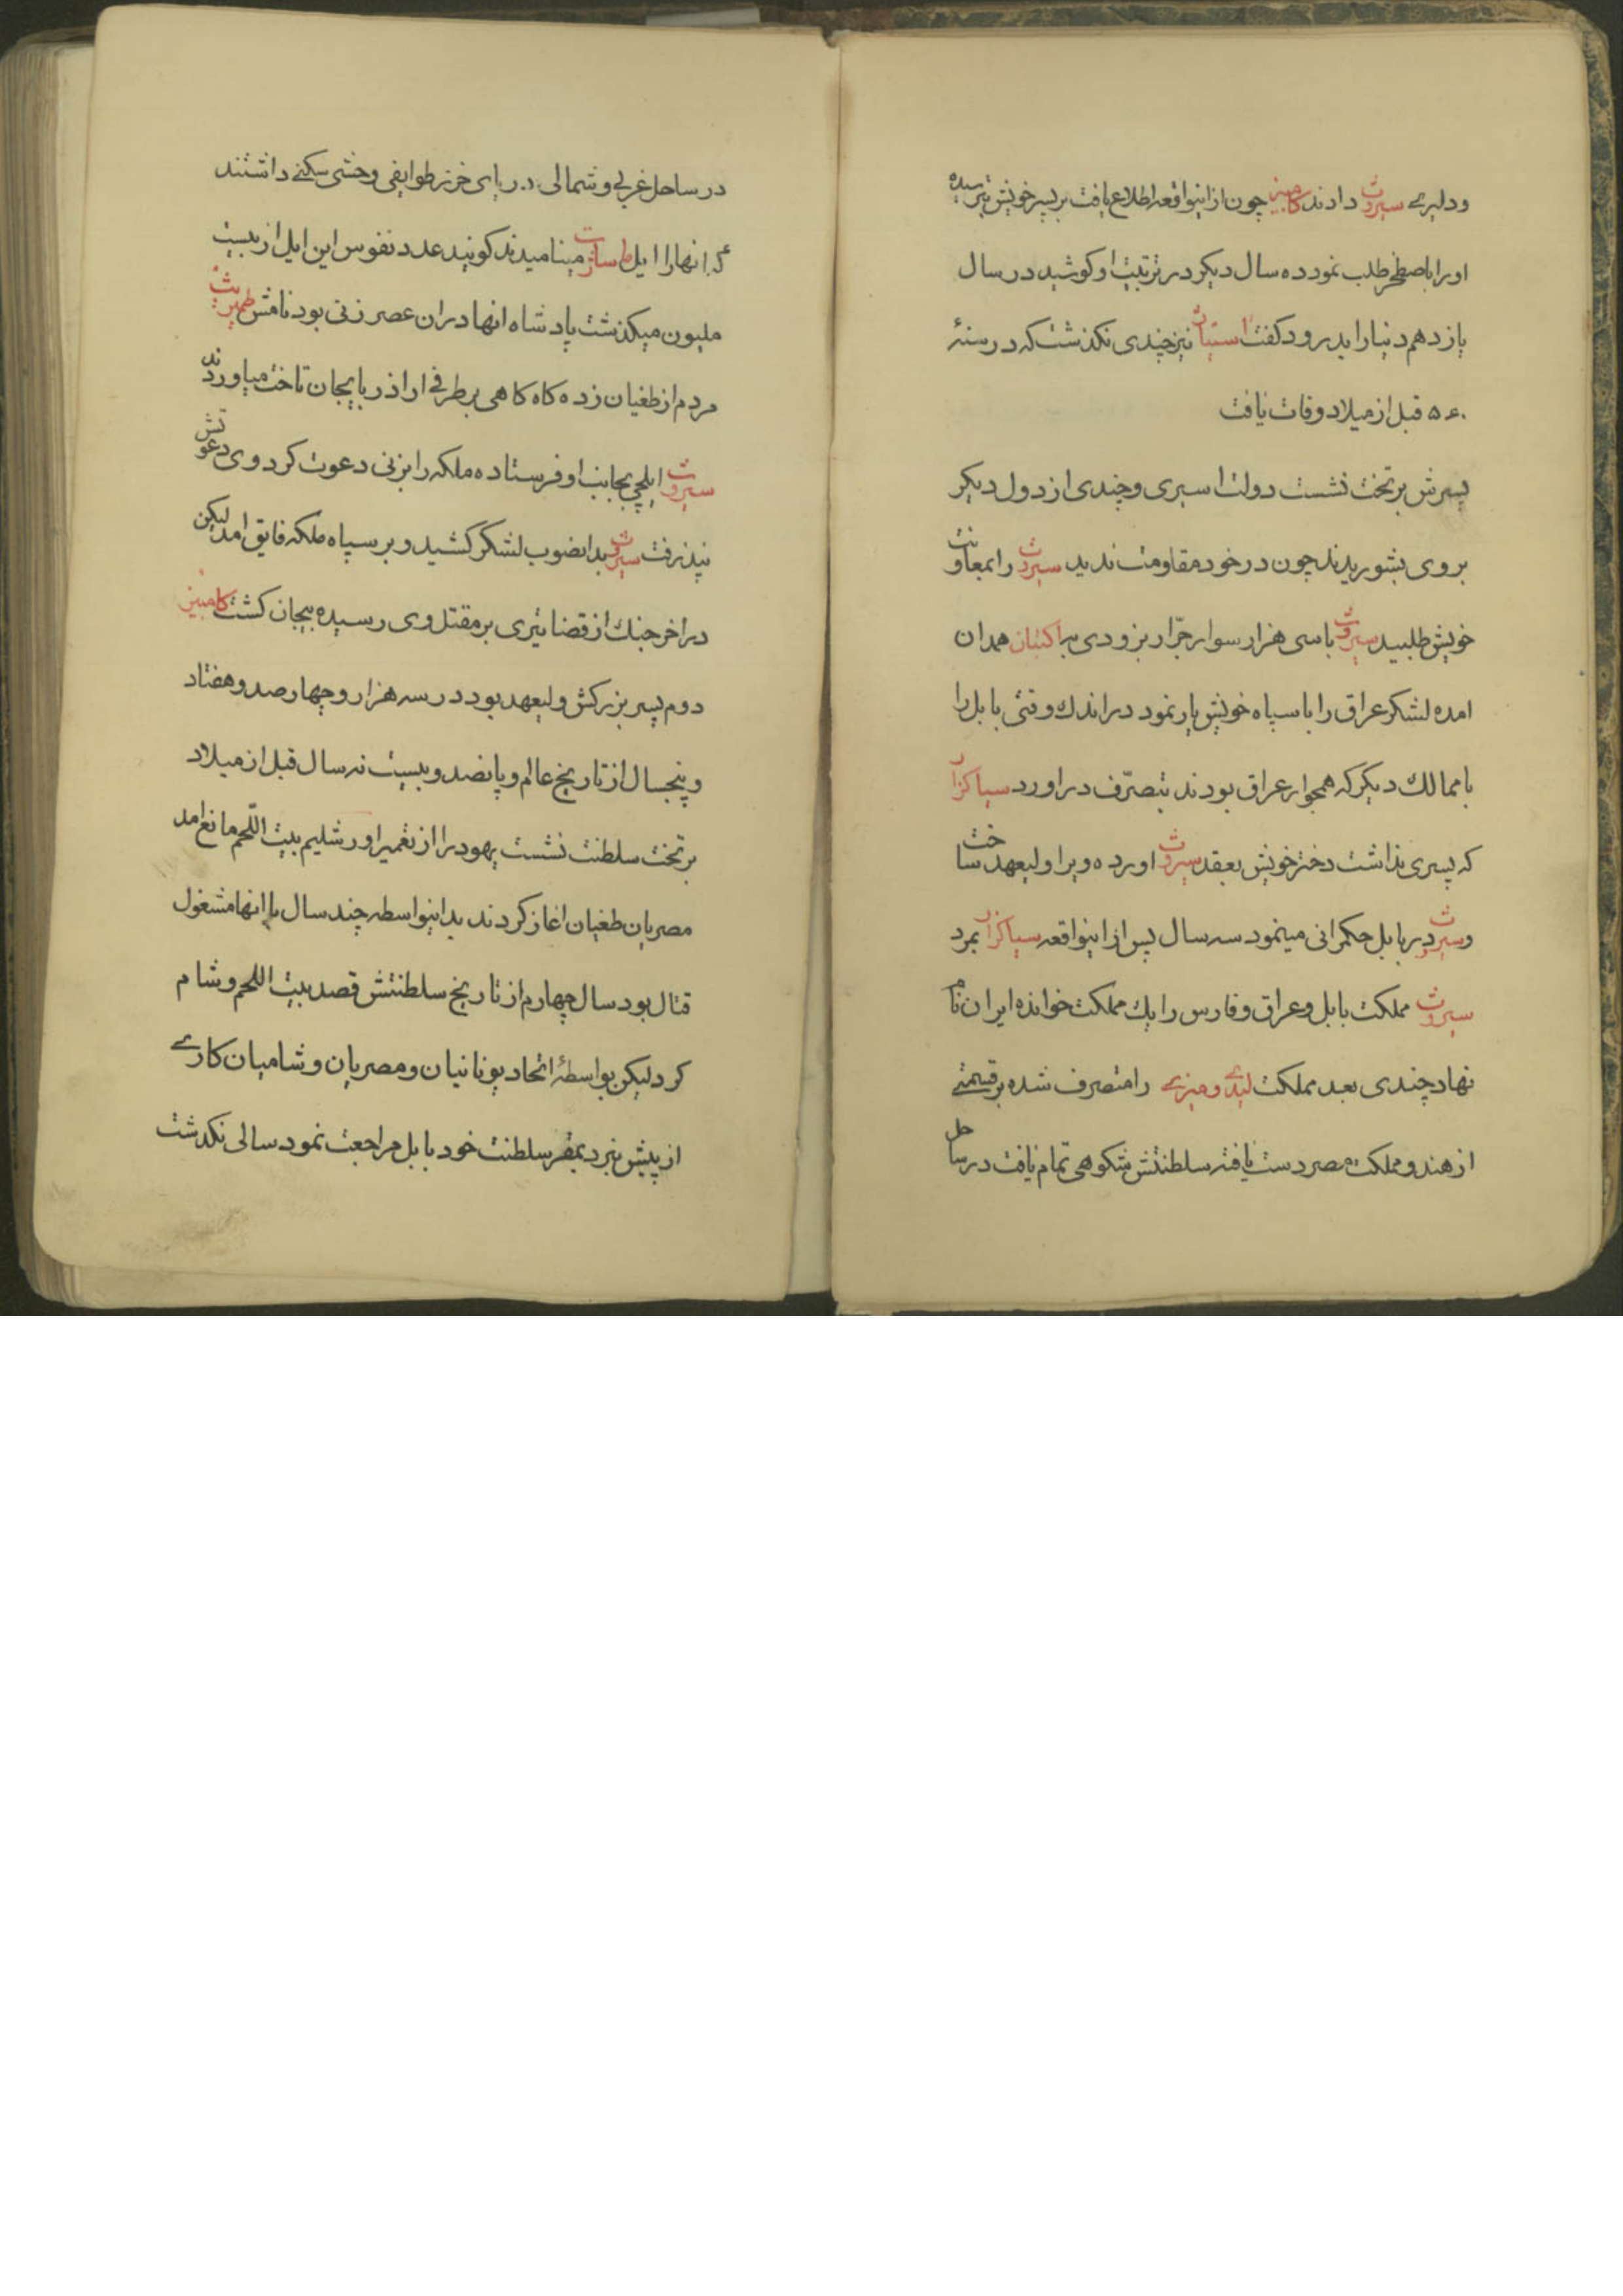 ودلیری سیروث دادند کامبیز چون ازاینواقعه اطلاع یافت بر پسر خویش ترسیده
اورا باصطخر طلب نمود ده سال دیکر در تربیت او کوشید در سال
یازدهم دنیا را بدرود کفت استیاژ نیز چندی نکذشت که در سنهٔ
۵۶۰ قبل از میلاد وفات یافت
پسرش بر تخت نشست دولت اسیری و چندی از دول دیکر
بروی بشوریدند چون در خود مقاومت ندید سیروث را بمعاونت
خویش طلبید سیروث باسی هزار سوار جرّار بزودی به اکتبان همدان
امده لشکر عراق را با سپاه خویش یار نمود در اندك وقتی بابل را
با ممالك دیکر که همجوار عراق بودند بتصرّف دراورد سیاکزار
که پسری نداشت دختر خویش بعقد سیروث اورده ویرا ولیعهد ساخت
وسیروث در بابل حکمرانی مینمود سه سال پس از اینواقعه سیاکزار بمرد
سیروث مملکت بابل و عراق و فارس را یك مملکت خوانده ایران نام
نهاد چندی بعد مملکت لیدی و میزی را متصرف شده بر قسمتی
از هند و مملکت مصر دست یافته سلطنتش شکوهی تمام یافت در ساحل
در ساحل غربی و شمالی دریای خزر طوایفی وحشی سکنی داشتند
که انهارا ایل ماساژت مینامیدند کویند عدد نفوس این ایل از بیست
ملیون میکذشت پادشاه انها دران عصر زنی بود نامش طمیریث
مردم از طغیان زده کاه کاهی بر طرفی از اذربایجان تاخت میاوردند
سیروث ایلچی بجانب او فرستاده ملکه را بزنی دعوت کرد وی دعوتش
نپذرفت سیروث بدانصوب لشکر کشید و بر سپاه ملکه فایق امد لیکن
در اخر جنك از قضا تیری بر مقتل وی رسیده بیجان کشت کامبیز
دوم پسر بزرکش ولیعهد بود در سه هزار و چهار صد و هفتاد
و پنجسال از تاریخ عالم و پانصد و بیست نه سال قبل از میلاد
بر تخت سلطنت نشست یهود را از تعمیر اورشلیم بیت اللّحم مانع امد
مصریان طغیان اغاز کردند بداینواسطه چند سال با انها مشغول
قتال بود سال چهارم از تاریخ سلطنتش قصد بیت اللحم و شام
کرد لیکن بواسطهٔ اتحاد یونانیان و مصریان و شامیان کاری
از پیش نبرد بمقر سلطنت خود بابل مراجعت نمود سالی نکذشت